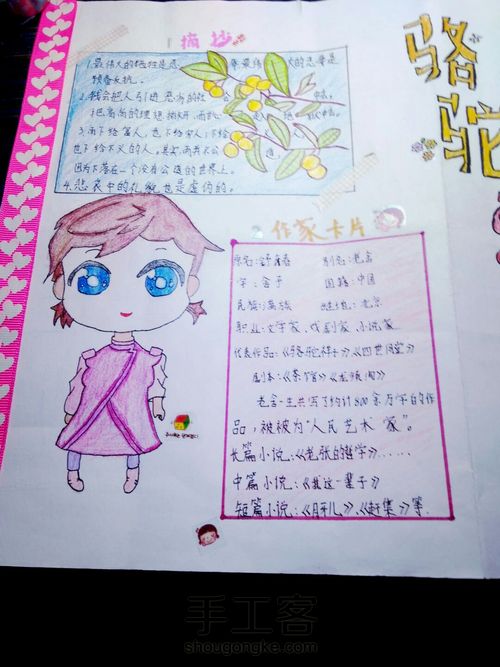 摘抄
1.最伟大的牺牲是忍
大的忍辱是
预备反抗。
2.我会把人引进
3.雨下给富人,也下给穷人;下给
也下给不义的人,其实,雨并不公
因为下落在一个没有公道的世界上。
4.悲哀中的礼貌也是虚伪的。
骆
驼
作家卡片
原名:舒庆春 别名:老舍
字:舍予 国籍:中国
民族:满族 北京
职业:文学家、戏剧家、小说家
代表作品:《骆驼祥子》《四世同堂》
剧本:《茶馆》《龙须沟》
老舍一生共写了约计800余万字的作
品,被被为“人民艺术家”。
长篇小说:《老张的哲学》......
中篇小说:《我这一辈子》
短篇小说:《月牙儿》、《赶集》等.
手工客
shougongke.com